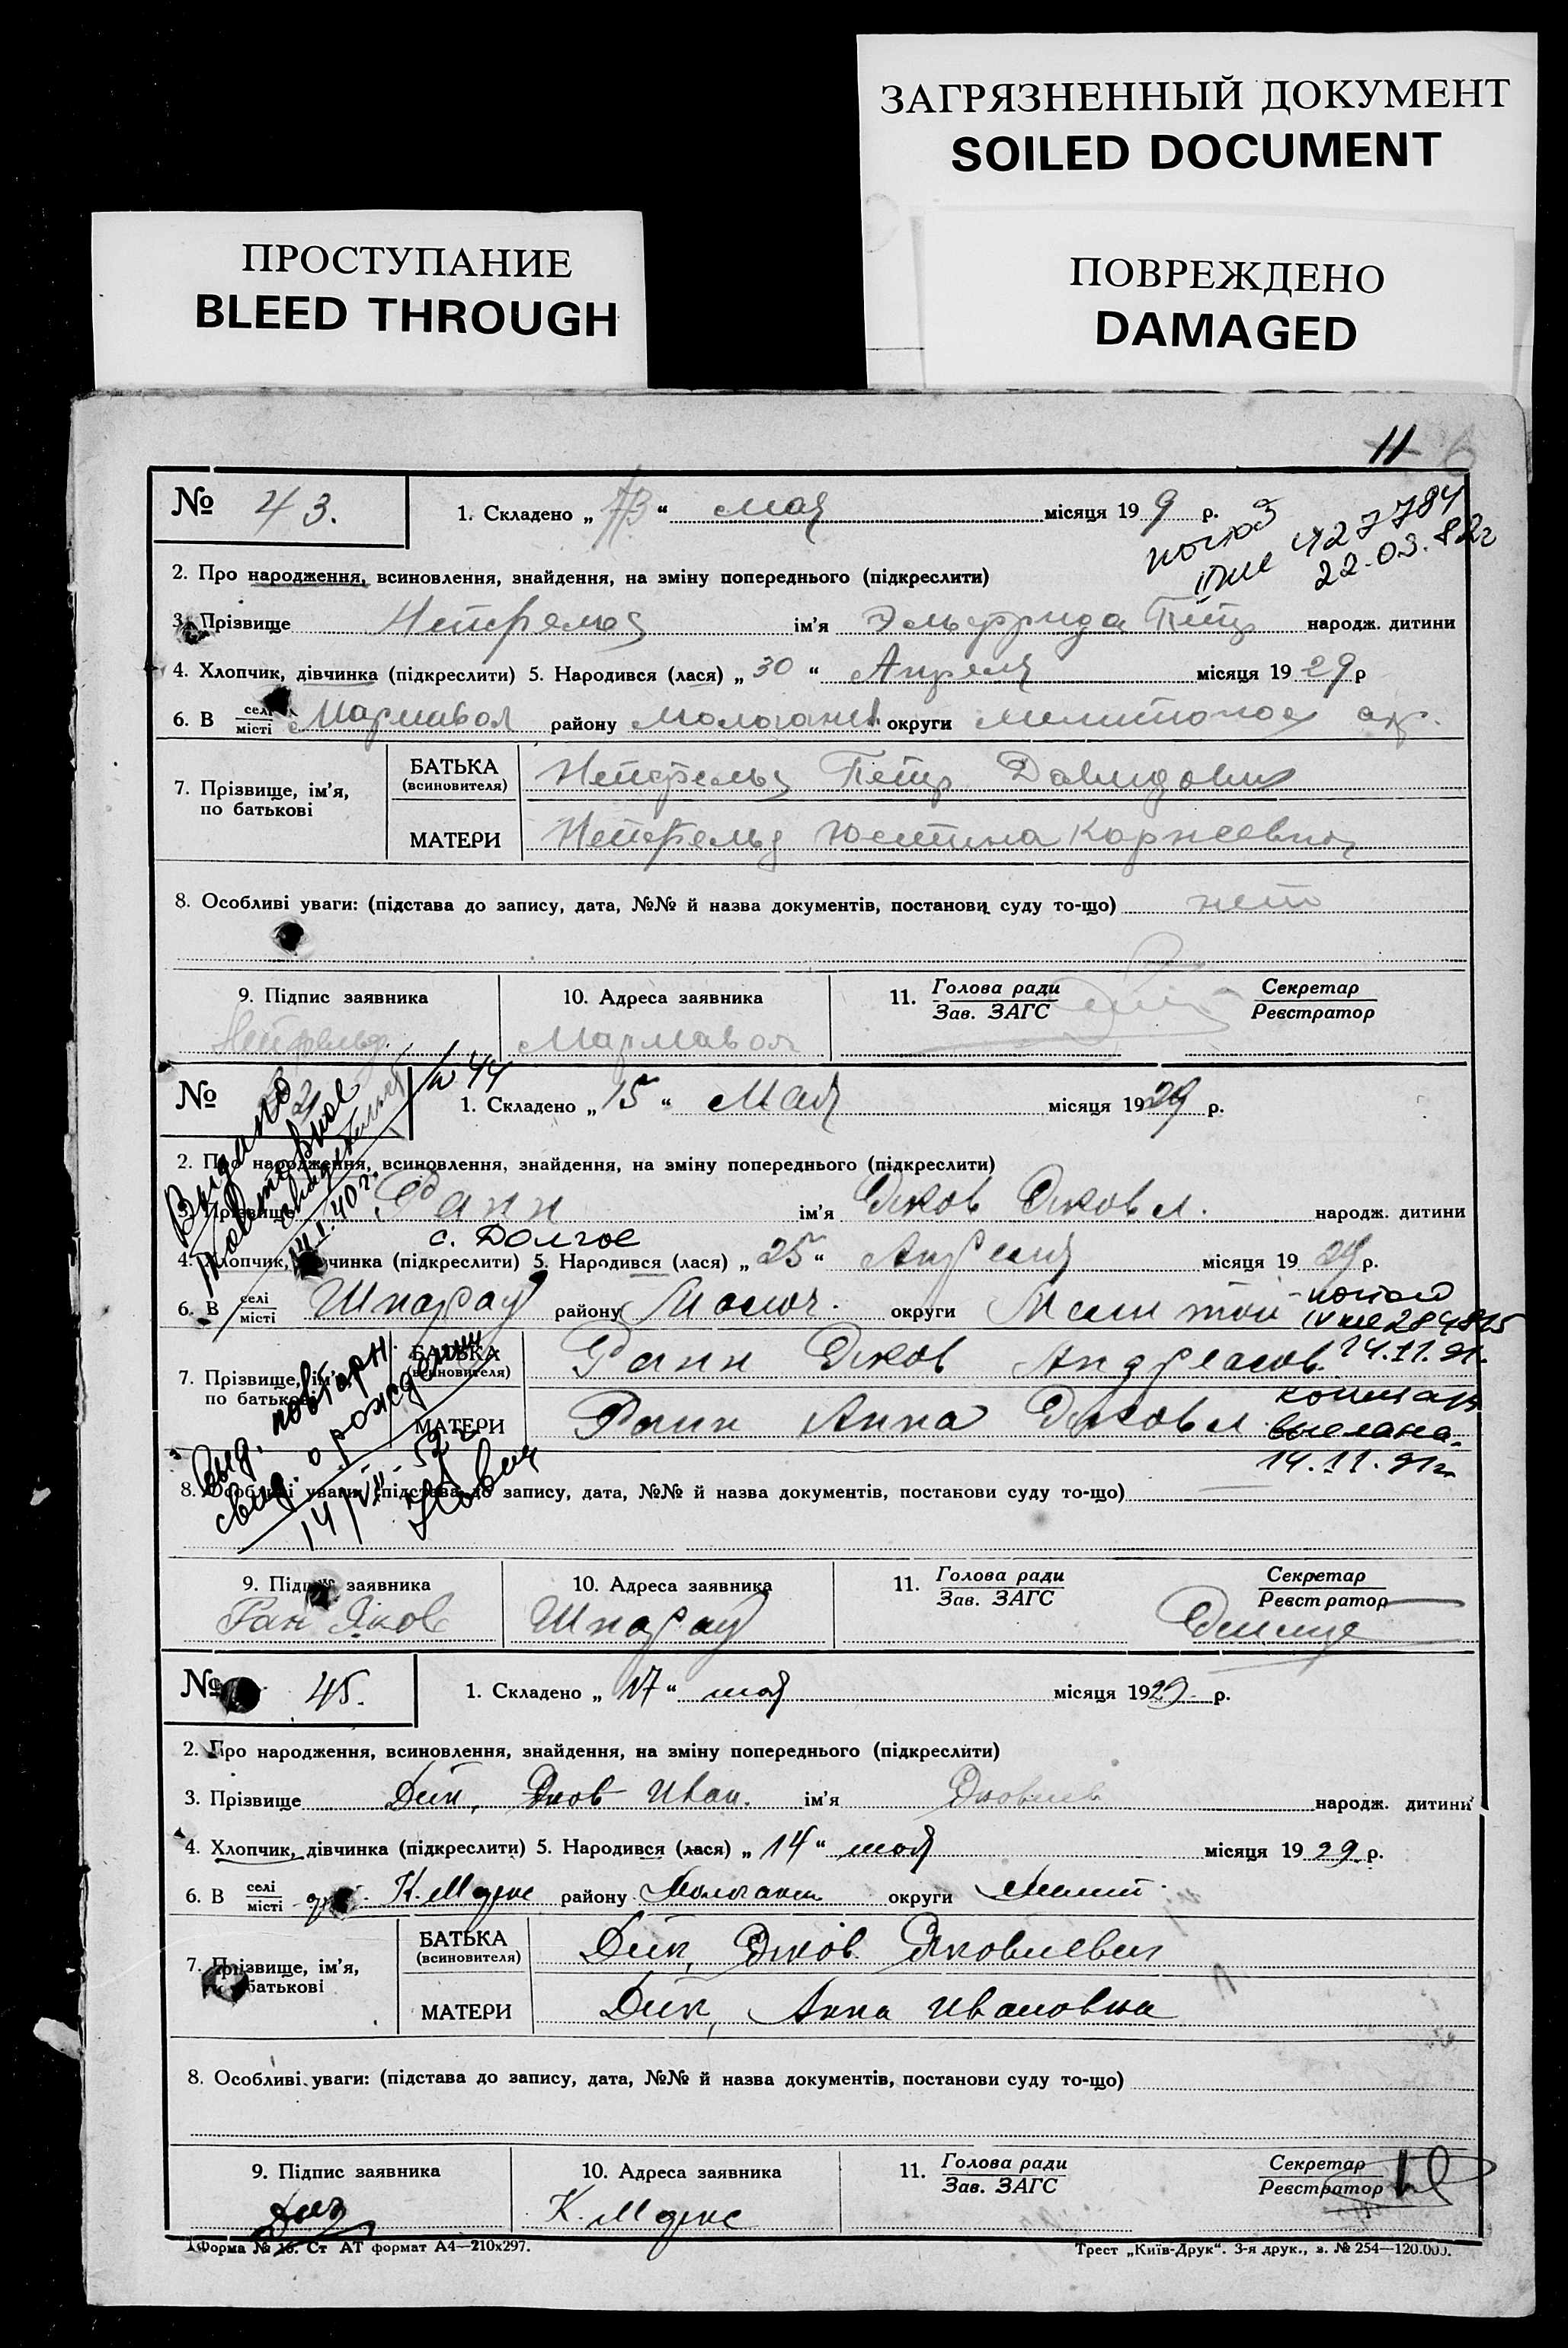 ЗАГРЯЗНЕННЫЙ ДОКУМЕНТ
SOILED DOCUMENT
ПРОСТУПАНИЕ
BLEED THROUGH
ПОВРЕЖДЕНО
DAMAGED
11
№ 43. 1. Складено „ 13 “ мая місяця 19 9 р.
427784
22.03.82г
2. Про народження, всиновлення, знайдення, на зміну попереднього (підкреслити)
3. Прізвище Нейфельд ім'я Эльфрида Петр народж. дитини
4. Хлопчик, дівчинка (підкреслити) 5. Народився (лася) „ 30 “ Апреля місяця 19 29 р
6. В селі/місті Мармавол району Молочанск округи Мелитопол окр.
7. Прізвище, ім'я, по батькові
БАТЬКА (всиновителя) Нейфельд Петр Давидович
МАТЕРИ Нейфельд Юстина Корнеевна
8. Особливі уваги: (підстава до запису, дата, №№ й назва документів, постанови суду то-що) нет
9. Підпис заявника 10. Адреса заявника 11. Голова ради/Зав. ЗАГС Секретар/Реєстратор
Нейфельд Мармавол
№ №44 1. Складено „ 15 “ Мая місяця 1929 р.
Видано повторное свидетельство 14.I.40 г.
2. Про народження, всиновлення, знайдення, на зміну попереднього (підкреслити)
3. Прізвище Ранн ім'я Яков Яковл. народж. дитини
с. Долгое
4. Хлопчик, дівчинка (підкреслити) 5. Народився (лася) „ 25 “ Апреля місяця 19 29 р.
6. В селі/місті Шпарау району Молоч. округи Мелитоп
IV 284815
14.11.91.
7. Прізвище, ім'я, по батькові
БАТЬКА (всиновителя) Ранн Яков Андреасов.
МАТЕРИ Ранн Анна Яковл
выслана
14.11.91г
Выд. повторн. свид. о рождении
14/VII-52 г
8. Особливі уваги: (підстава до запису, дата, №№ й назва документів, постанови суду то-що)
9. Підпис заявника 10. Адреса заявника 11. Голова ради/Зав. ЗАГС Секретар/Реєстратор
Ран Яков Шпарау
№ 45. 1. Складено „ 17 “ мая місяця 1929 р.
2. Про народження, всиновлення, знайдення, на зміну попереднього (підкреслити)
3. Прізвище Дик, Яков Иван. ім'я Яковлев народж. дитини
4. Хлопчик, дівчинка (підкреслити) 5. Народився (лася) „ 14 “ мая місяця 19 29 р.
6. В селі/місті К. Мунс району Молочанск округи Мелит.
7. Прізвище, ім'я, по батькові
БАТЬКА (всиновителя) Дик, Яков Яковлевич
МАТЕРИ Дик, Анна Ивановна
8. Особливі уваги: (підстава до запису, дата, №№ й назва документів, постанови суду то-що)
9. Підпис заявника 10. Адреса заявника 11. Голова ради/Зав. ЗАГС Секретар/Реєстратор
Дик К. Мунс
Форма № 16. Ст АТ формат А4—210х297. Трест „Київ-Друк“. 3-я друк., з. № 254—120.000.